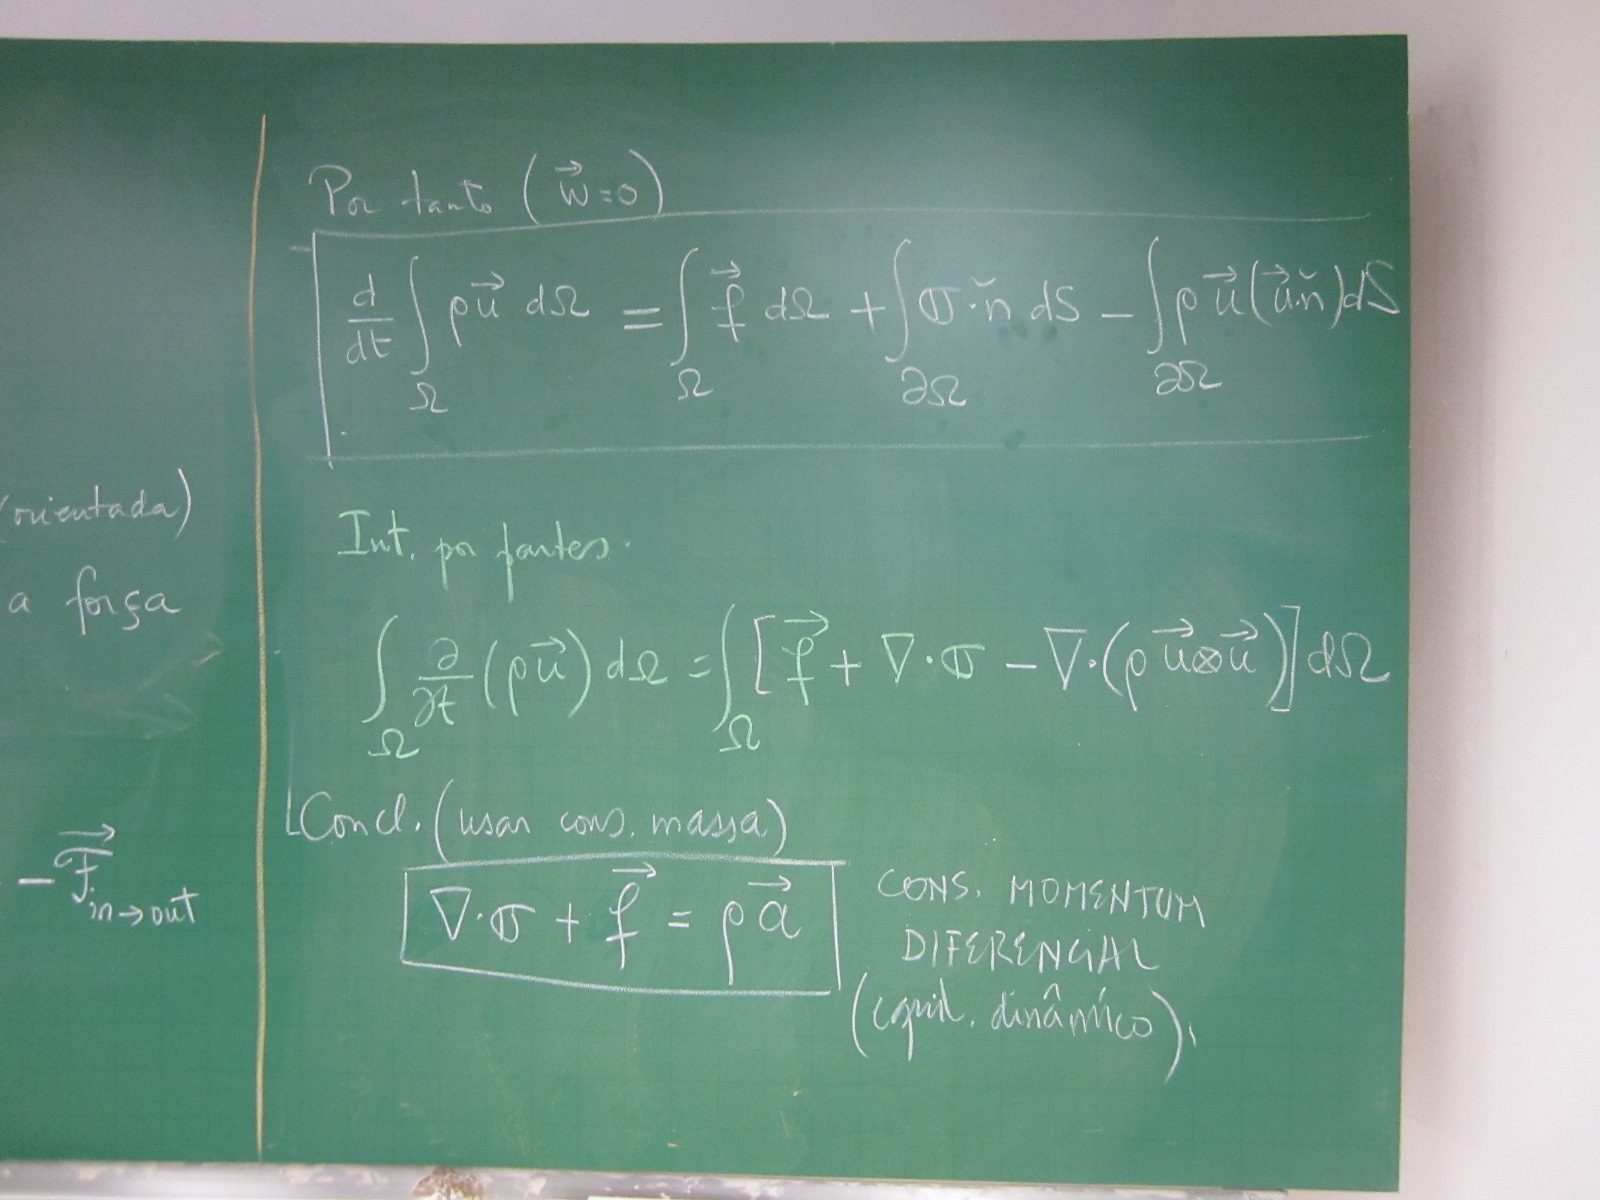 (orientada)
a força
− 𝓕⃗ in→out
Por tanto (w⃗=0)
d/dt ∫_Ω ρu⃗ dΩ = ∫_Ω f⃗ dΩ + ∫_∂Ω σ·ň dS − ∫_∂Ω ρ u⃗(u⃗·ň)dS
Int. por partes.
∫_Ω ∂/∂t (ρu⃗) dΩ = ∫_Ω [f⃗ + ∇·σ − ∇·(ρ u⃗⊗u⃗)] dΩ
Concl. (usar cons. massa)
∇·σ + f⃗ = ρa⃗
CONS. MOMENTUM
DIFERENCIAL
(equil. dinâmico)